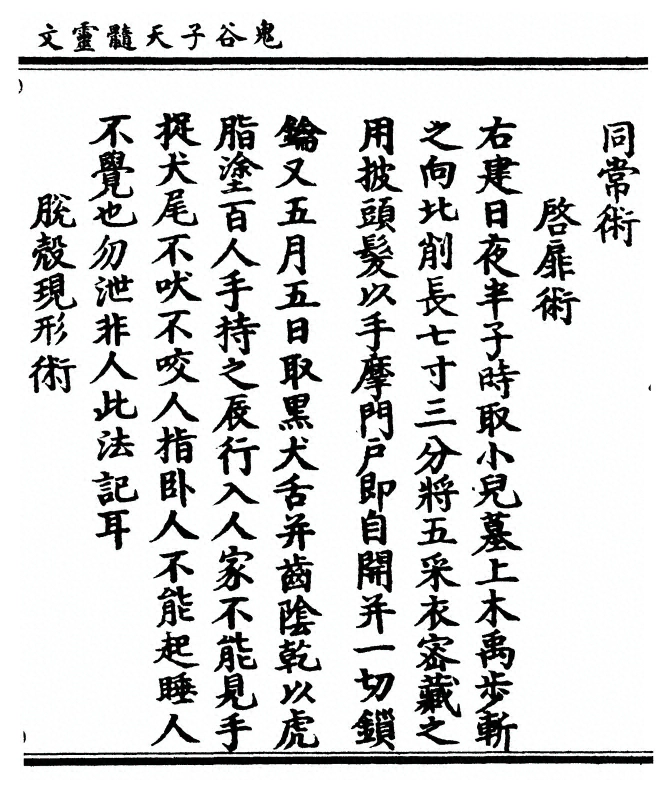 鬼谷子天髓靈文
同常術
啓扉術
右建日夜半子時取小兒墓上木禹步斬
之向北削長七寸三分將五采衣密藏之
用披頭髮以手摩門戶即自開并一切鎖
鑰又五月五日取黑犬舌并齒陰乾以虎
脂塗百人手持之辰行入人家不能見手
捉犬尾不吠不咬人指卧人不能起睡人
不覺也勿泄非人此法記耳
脫殼現形術